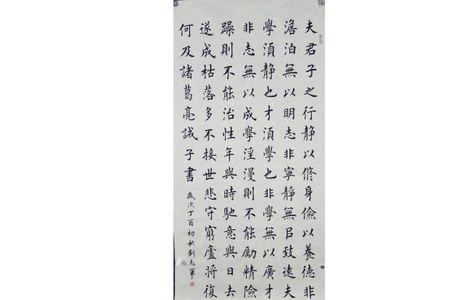 夫君子之行静以修身儉以養德非
澹泊無以明志非寧静無㠯致遠夫
學須静也才須學也非學無以廣才
非志無以成學淫漫則不能勵精險
躁則不能治性年與時馳意與日去
遂成枯落多不接世悲守窮廬將復
何及諸葛亮誡子書 歲次丁酉初秋劉志軍